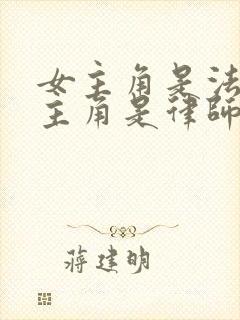 女主角是法
主角是律師
蔣建明